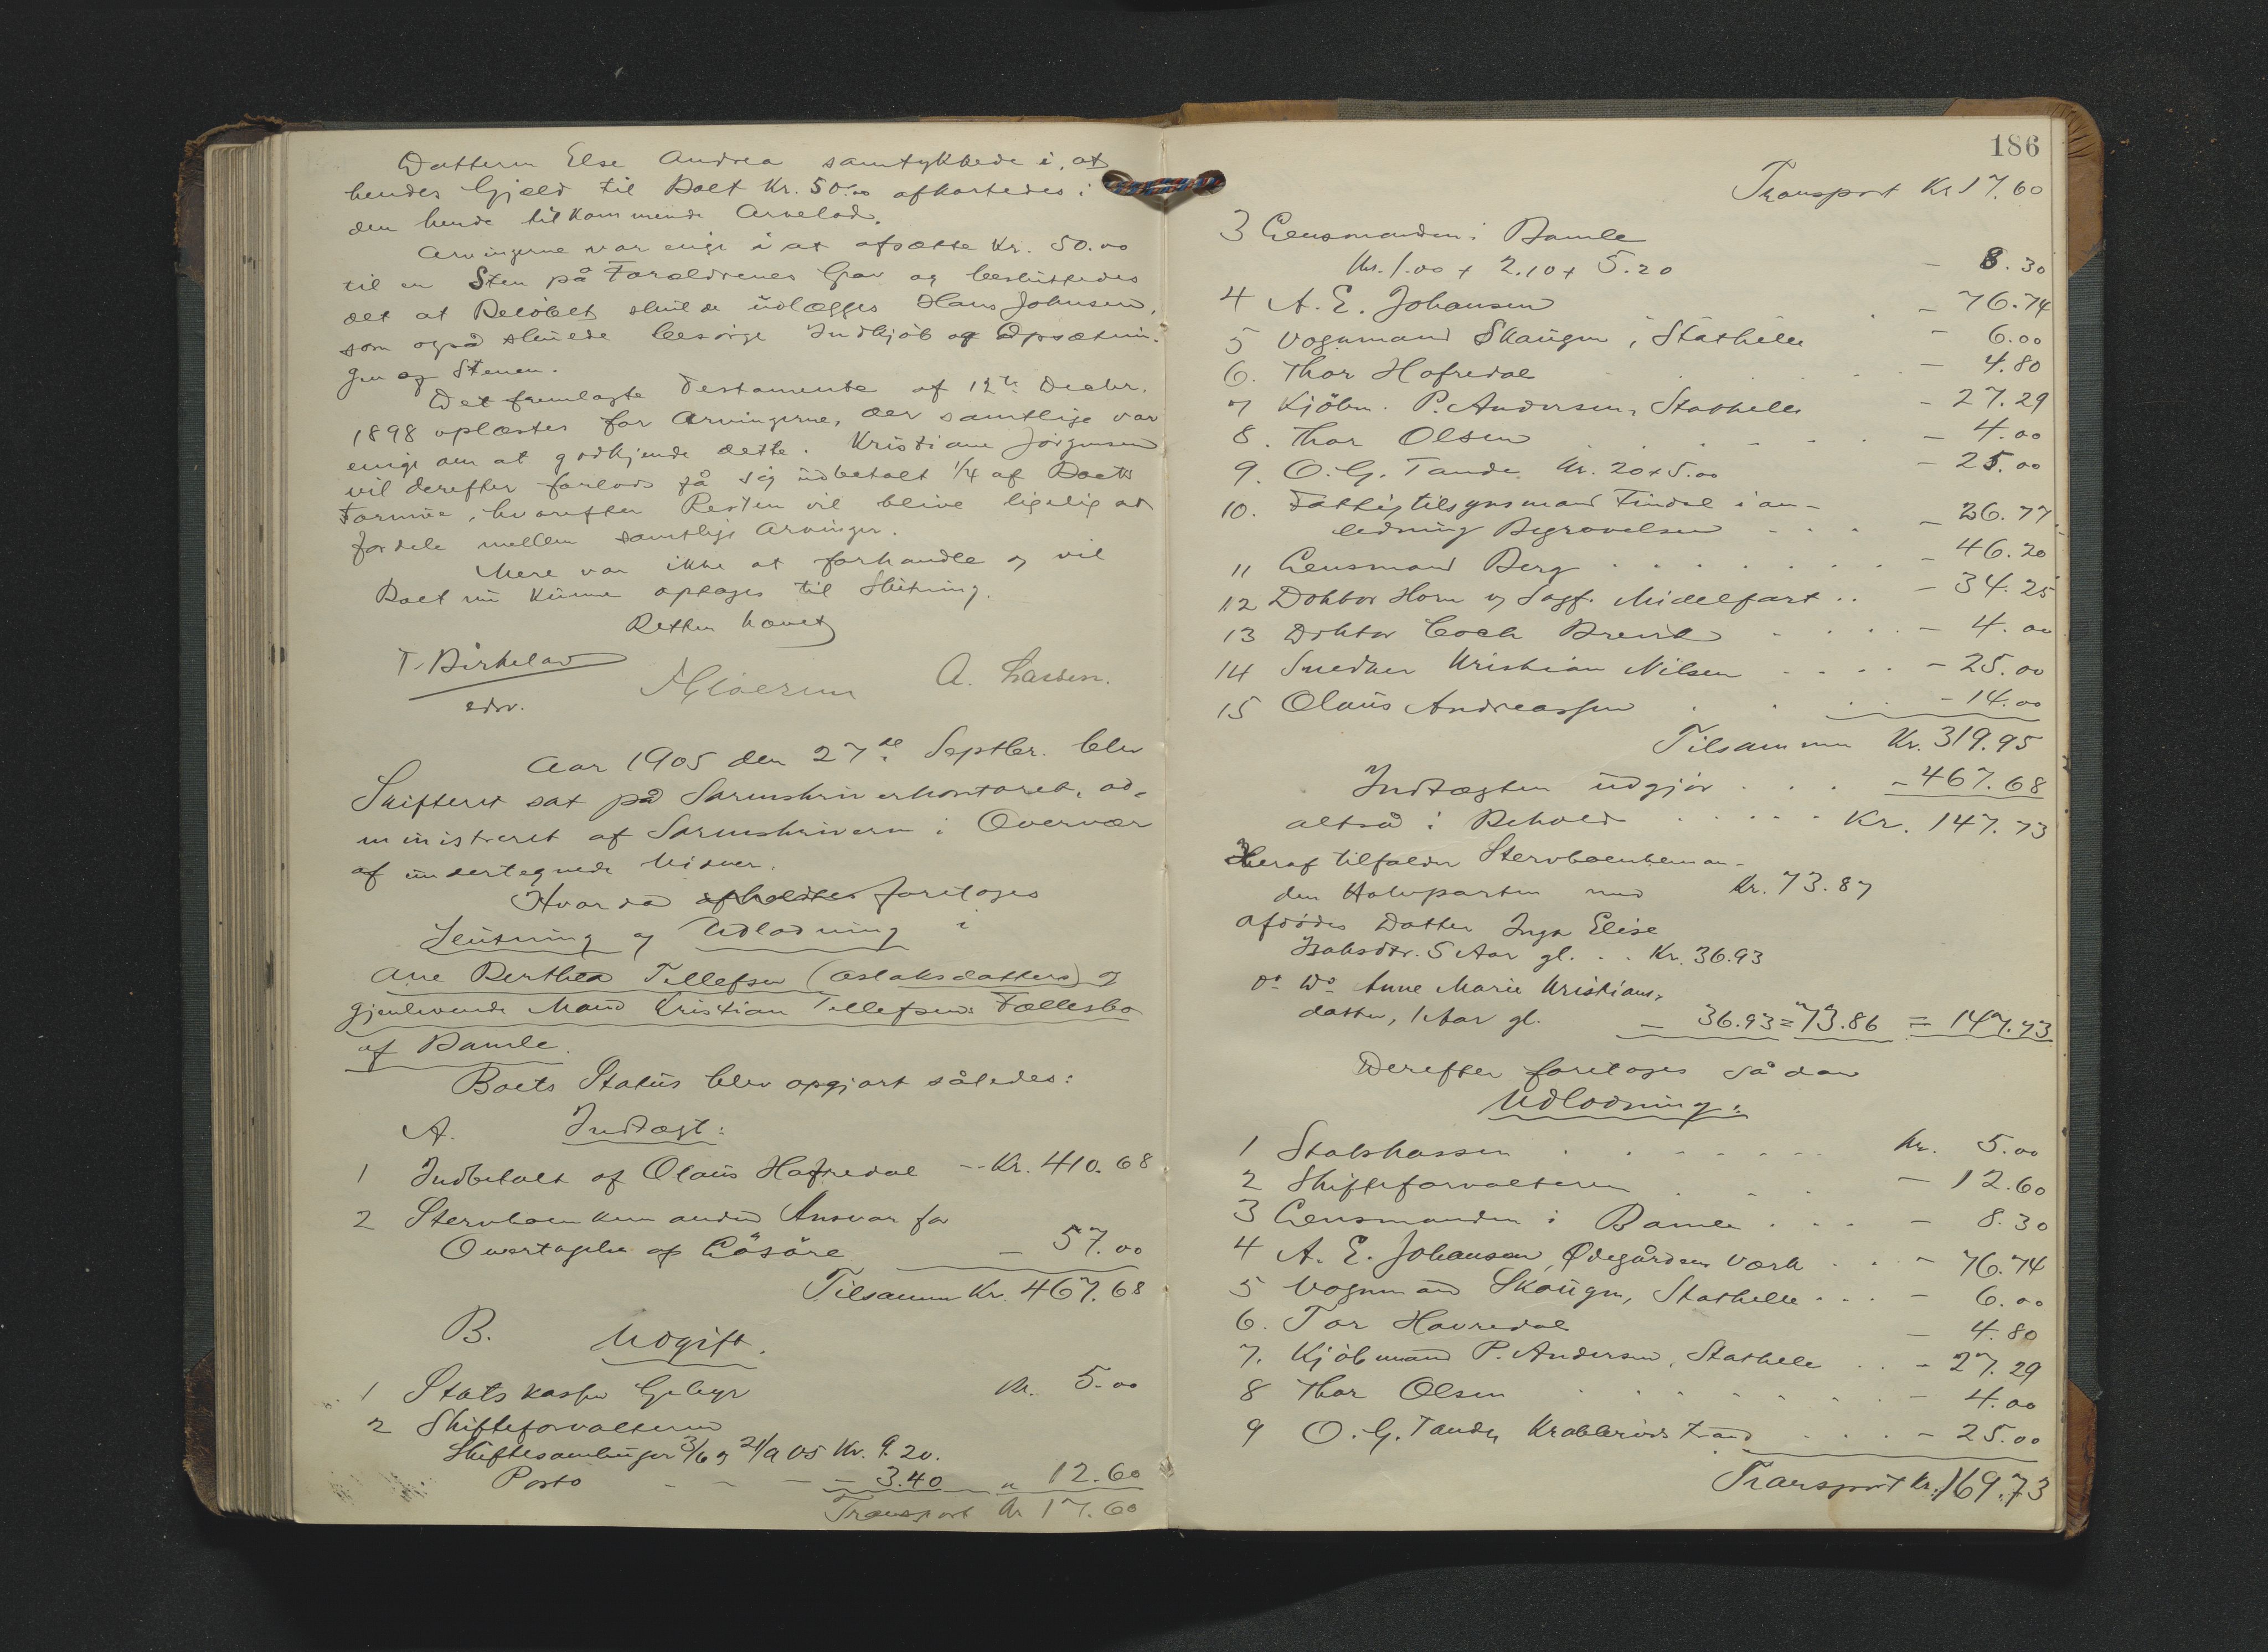 Datteren Else Andrea samtykkede i, at
hendes Gjæld til Boet Kr. 50.00 afkortedes i
den hende tilkommende Arvelod.
Arvingerne var enige i at afsætte Kr. 50.00
til en Sten på Forældrenes Grav og besluttedes
det at Beløbet skulde udlægges Hans Johnsen,
som også skulde besørge Indkjøb og Opsætnin-
gen af Stenen.
Det fremlagte Testamente af 12te Decbr.
1898 oplæstes for Arvingerne, der samtlige var
enige om at godkjende dette. Kristiane Jörgensen
vil derefter forlods få sig udbetalt 1/4 af Boets
Formue, hvorefter Resten vil blive ligelig at
fordele mellem samtlige Arvinger.
Mere var ikke at forhandle og vil
Boet nu kunne optages til Slutning.
Retten hævet
T. Birkeland
edsv.
A. Larsen.
Aar 1905 den 27de Septbr. blev
Skifteret sat på Sorenskriverkontoret, ad-
ministreret af Sorenskriveren i Overvær
af undertegnede Vidner.
Hvorda afholdtes foretoges
Slutning og Udlodning i
Ane Berthea Tellefsen (Aslaksdatters) og
gjenlevende Mand Kristian Tellefsens Fællesbo
af Bamle.
Boets Status blev opgjort således:
A. Indtægt:
1 Indbetalt af Olaus Hafredal - Kr. 410.68
2 Stervboenkemanden Ansvar for
Overtagelse af Løsöre - 57.00
Tilsammen Kr. 467.68
B. Udgift.
1 Statskassen Gebyr Kr. 5.00
2 Skifteforvalteren
Skiftesamlinger 3/6 og 21/9 05 Kr. 9.20.
Porto - - - 3.40 " 12.60
Transport Kr 17.60
186
Transport Kr 17.60
3 Lensmanden i Bamle
Kr. 1.00 + 2.10 + 5.20 - 8.30
4 A. E. Johansen - 76.74
5 Vognmand Skaugen, Stathelle - 6.00
6. Thor Hafredal - 4.80
7 Kjöbm. P. Andersen, Stathelle - 27.29
8. Thor Olsen - 4.00
9. O. G. Tande Kr. 20 + 5.00 - 25.00
10. Fattigtilsynsmand Findal i an-
ledning Begravelsen - 26.77
11 Lensmand Berg - 46.20
12 Doktor Horn og Sagf. Midelfart .. - 34.25
13 Doktor Coch Brevik - 4.00
14 Snedker Kristian Nilsen - 25.00
15 Olaus Andreassen - 14.00
Tilsammen Kr. 319.95
Indtægten udgjör - 467.68
altså i Behold Kr. 147.73
Heraf tilfalder Stervboenkeman-
den Halvparten med Kr. 73.87
Afdödes Datter Inga Elise
Isaksdtr. 5 Aar gl. .. Kr. 36.93
Do Do Anne Marie Kristians-
datter, 1 Aar gl. - 36.93 = 73.86 = 147.73
Derefter foretoges sådan
Udlodning:
1 Statskassen Kr. 5.00
2 Skifteforvalteren - 12.60
3 Lensmanden i Bamle - 8.30
4 A. E. Johansen, Ødegårdens Værk - 76.74
5 Vognmand Skaugen, Stathelle - 6.00
6. Tor Havredal - 4.80
7. Kjöbmand P. Andersen, Stathelle - 27.29
8 Thor Olsen - 4.00
9 O. G. Tande, Krabberöds Strand - 25.00
Transport Kr. 169.73